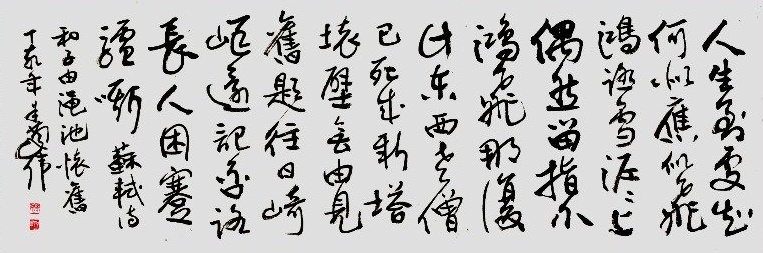 人生到處知
何似應似飛
鴻踏雪泥〻上
偶然留指爪
鴻飛那復
计東西老僧
已死成新塔
壞壁無由見
舊題往日崎
岖還記否路
長人困蹇
驢嘶 蘇軾詩
和子由澠池懷舊
丁亥年